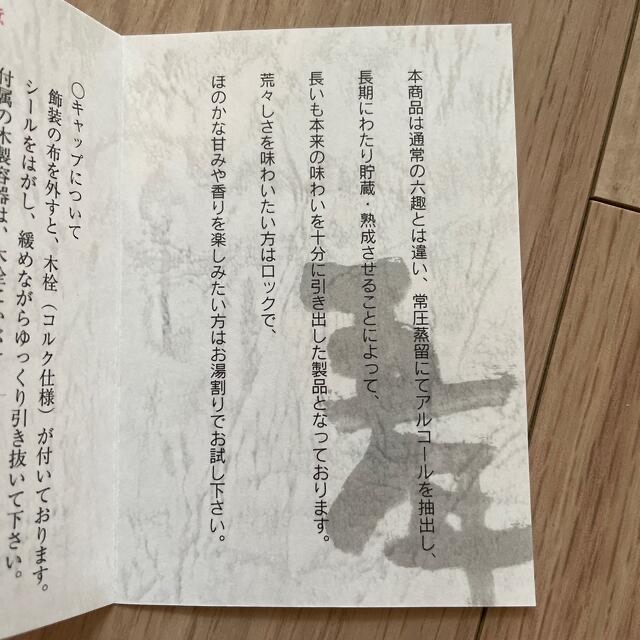 本商品は通常の六趣とは違い、常圧蒸留にてアルコールを抽出し、
長期にわたり貯蔵・熟成させることによって、
長いも本来の味わいを十分に引き出した製品となっております。
荒々しさを味わいたい方はロックで、
ほのかな甘みや香りを楽しみたい方はお湯割りでお試し下さい。
○キャップについて
飾装の布を外すと、木栓（コルク仕様）が付いております。
シールをはがし、緩めながらゆっくり引き抜いて下さい。
付属の木製容器は、